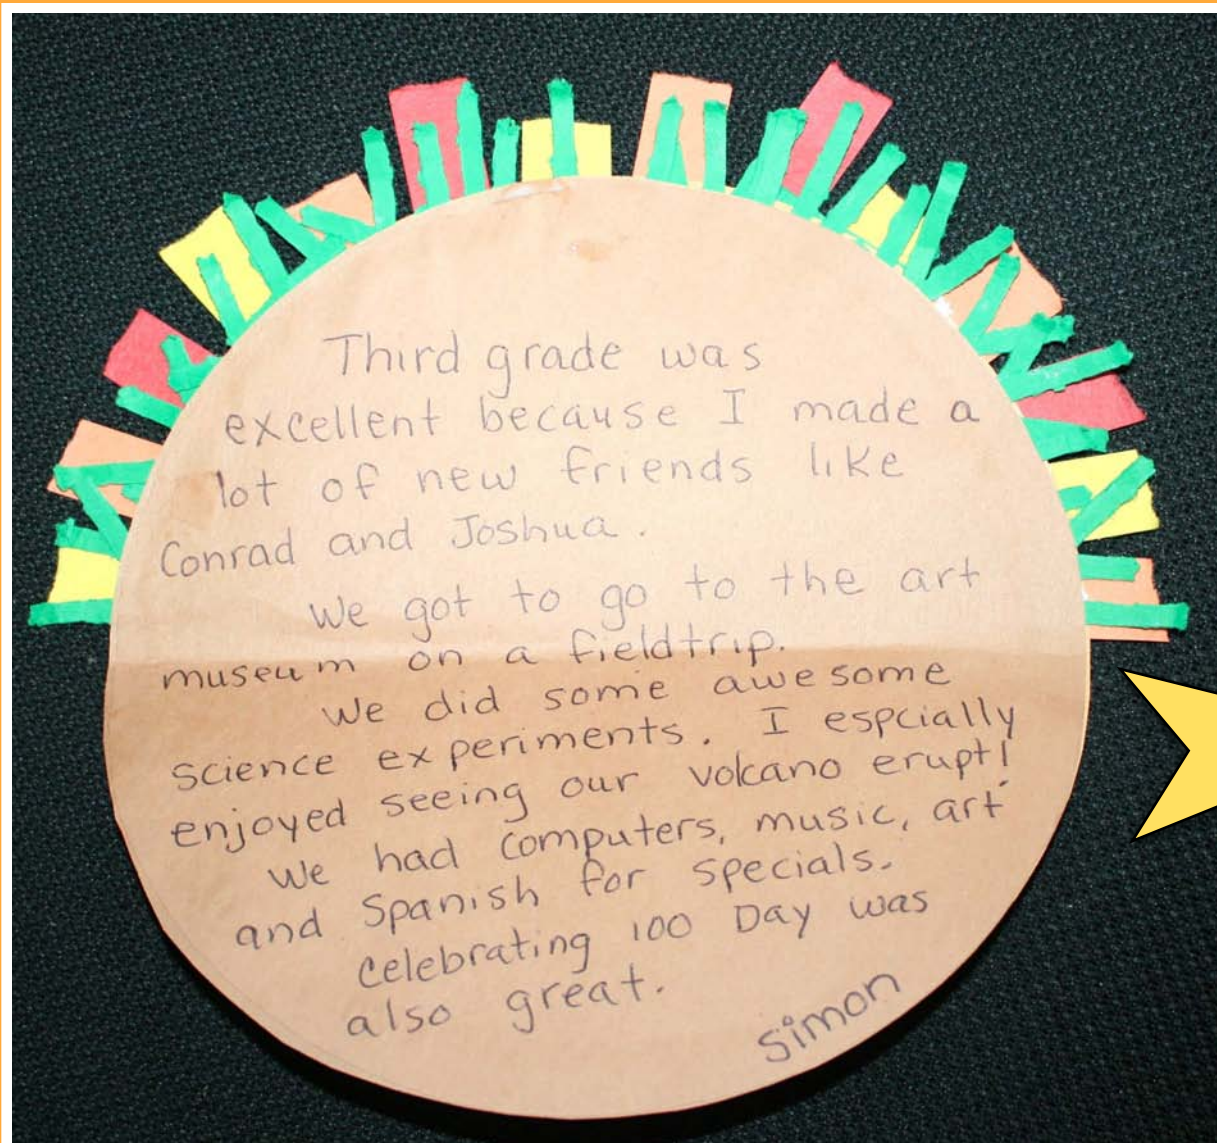 Third grade was
excellent because I made a
lot of new friends like
Conrad and Joshua.
We got to go to the art
museum on a fieldtrip.
We did some awesome
science experiments. I espcially
enjoyed seeing our volcano erupt!
We had computers, music, art
and Spanish for specials.
Celebrating 100 Day was
also great.
Simon